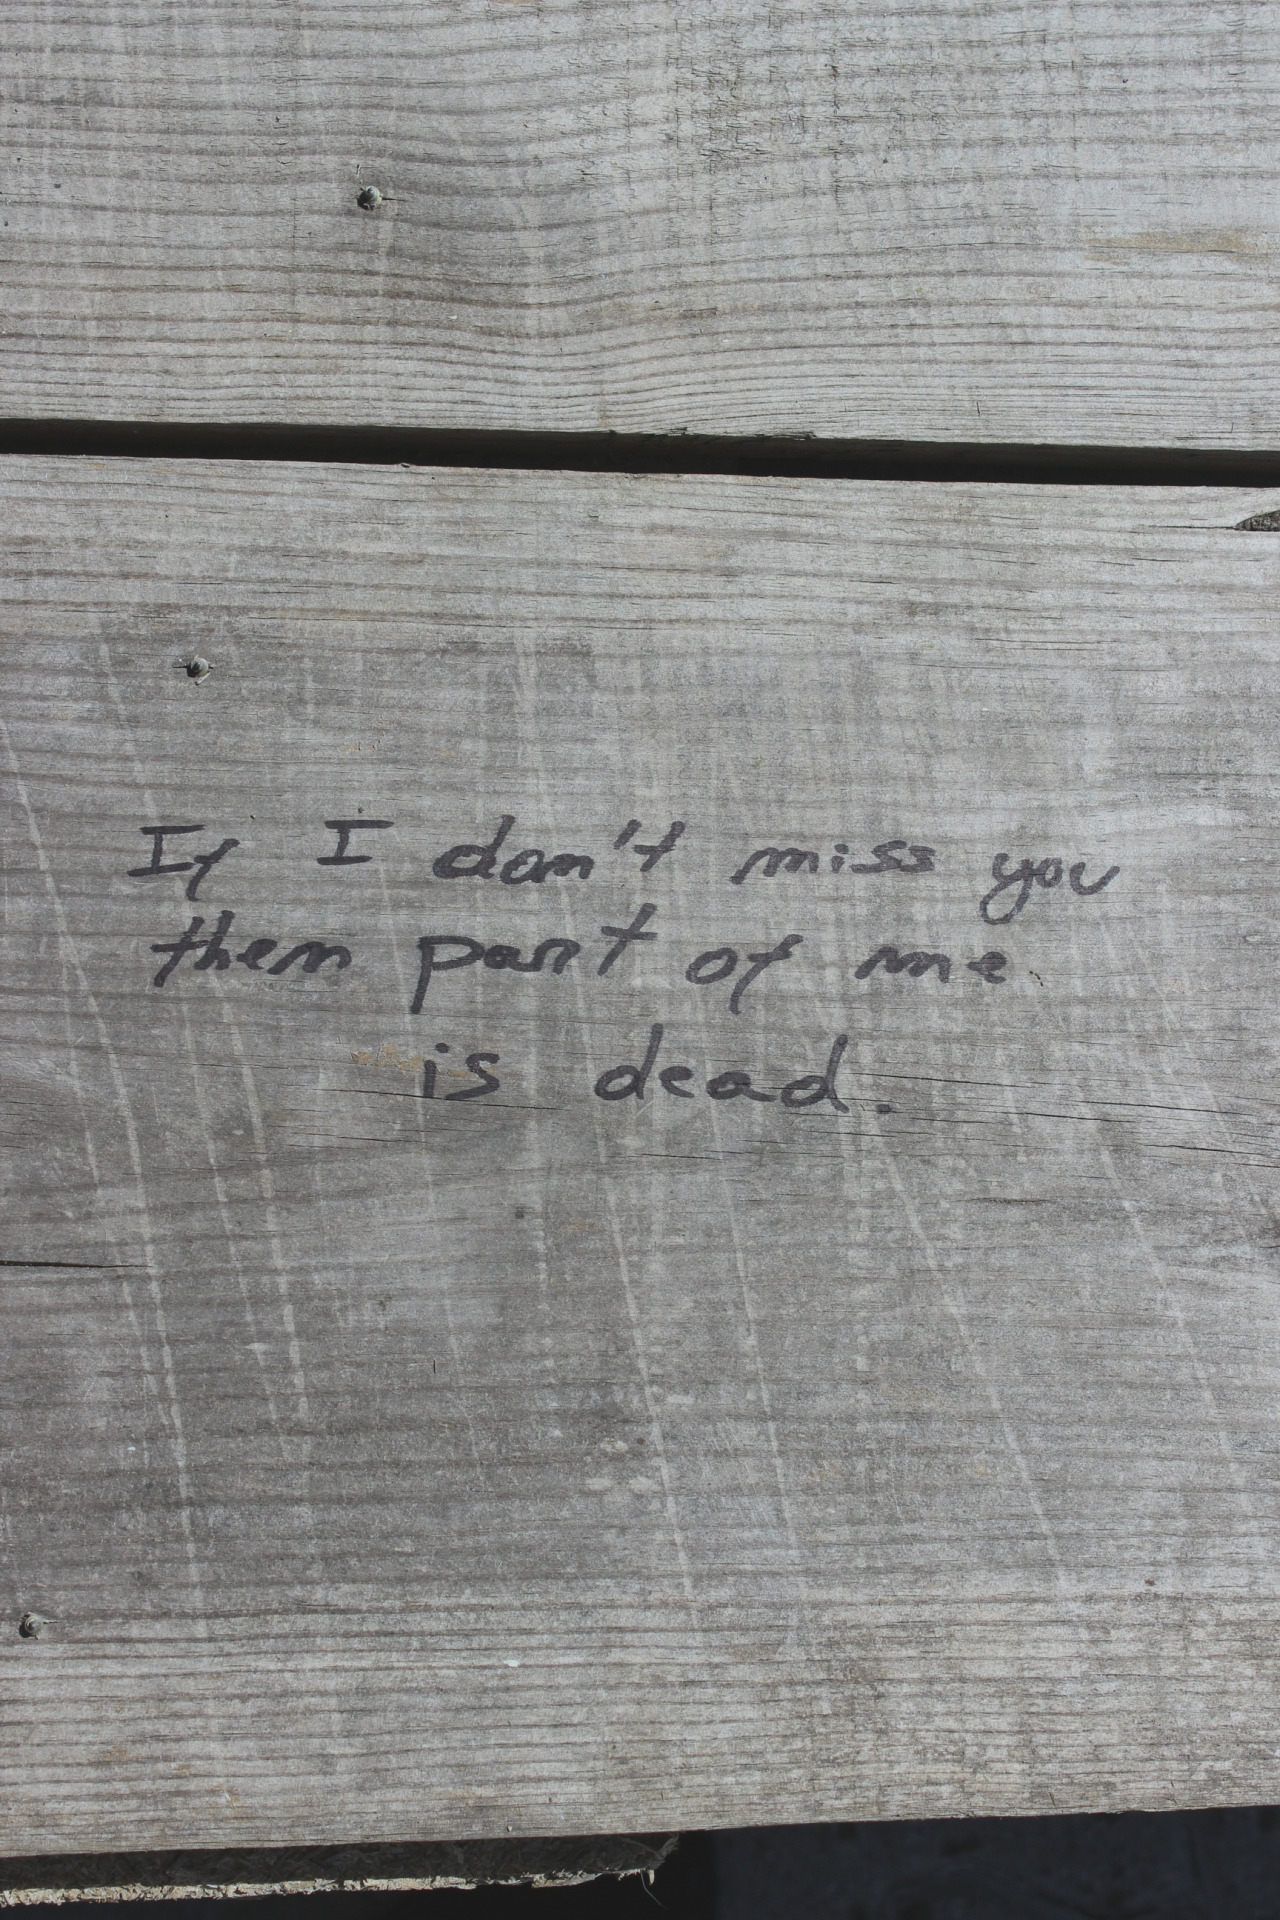 If I don't miss you
then part of me
is dead.